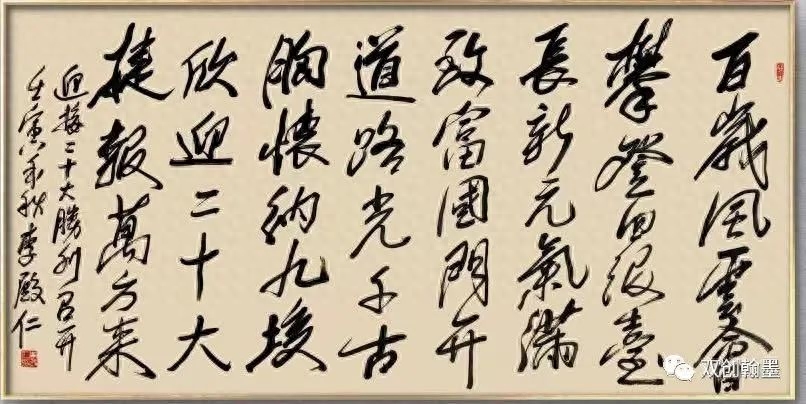 百歲風雲會
攀登臺
長新元氣滿
致富國門开
道路光千古
胸懷納九垓
欣迎二十大
捷報萬方来
迎接二十大勝利召开
壬寅年秋 李殿仁
双创翰墨